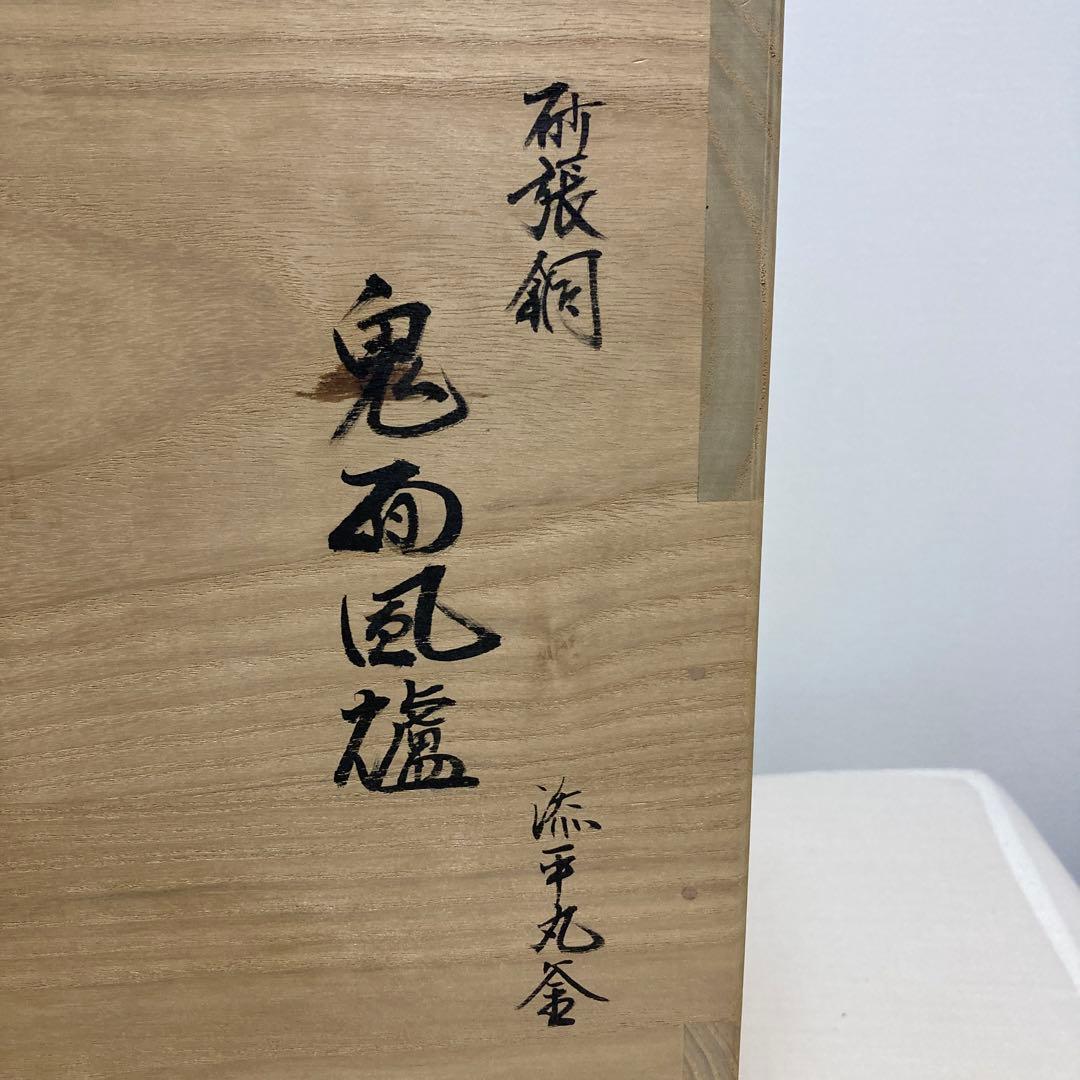 砂張銅
鬼面風爐
添平丸釜